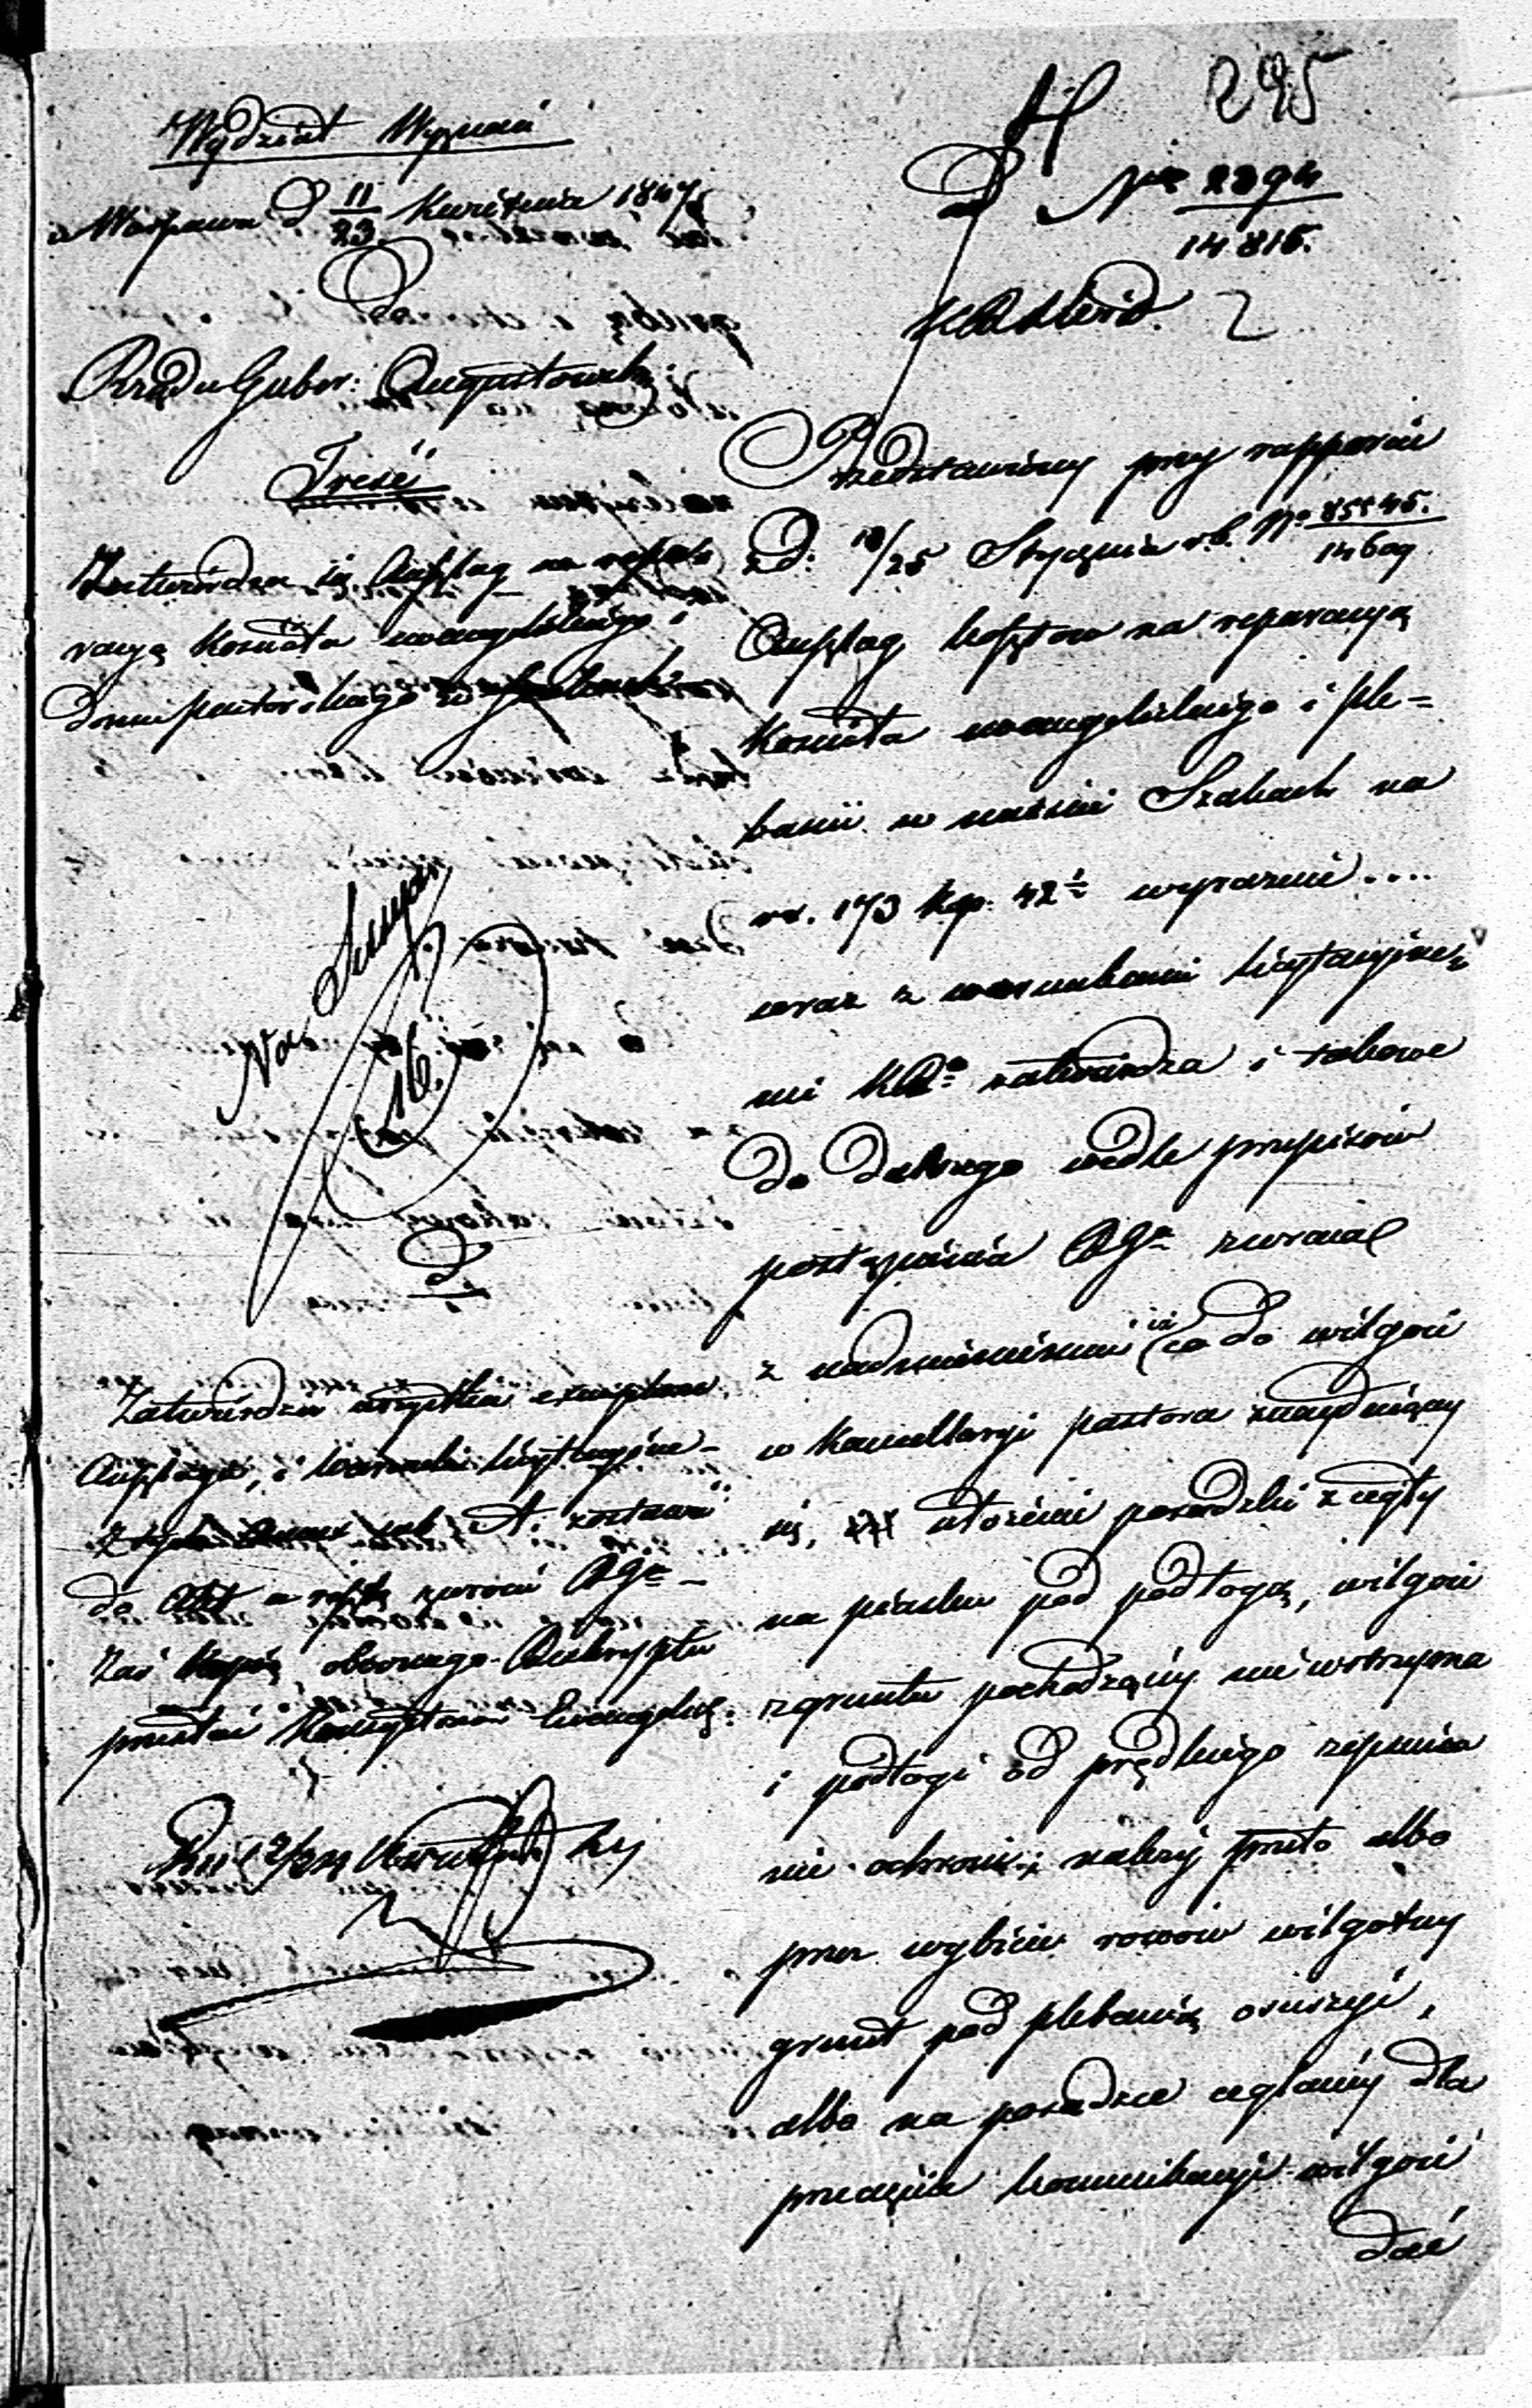 295
Wydział Wyznań
w Warszawie d 11/23 Kwietnia 1847
Do
Rządu Guber: Augustowsk:
Treść
Zatwierdza się Anszlag na repa-
racyą Kościoła ewangelickiego i
domu pastorskiego w
Zatwierdza wszystkie exemplarze
Anszlagu, i warunki licytacyjne
zostawić
do Akt a resztę zwrócić RGu
Zaś Kopią obecnego Reskryptu
przesłać Konsystorzowi Ewangelic:
D Nro 2394
14815.
Przedstawiony przy rapporcie
z d: 13/25 Stycznia r.b. No
14609
Anszlag kosztów na reparacyą
Kościoła ewangelickiego i ple=
banii w mieście Szakach na
rs. 173 kop. 42½ wyraźnie....
wraz z warunkami licytacyjne-
mi KR zatwierdza i takowe
do dalszego wedle przepisów
postąpienia RGu zwraca
z nadmienieniem iż co do wilgoci
w kancellaryi pastora znaydującey
się, ułożenie posadzki z cegły
na piasku pod podłogą, wilgoci
z gruntu pochodzącey nie wstrzyma
i podłogi od prędkiego zepsucia
nie ochroni; należy przeto albo
przez wybicie rowów wilgotny
grunt pod plebanią osuszyć,
albo na posadzce ceglaney dla
przecięcia kommunikacyi wilgoci
dać